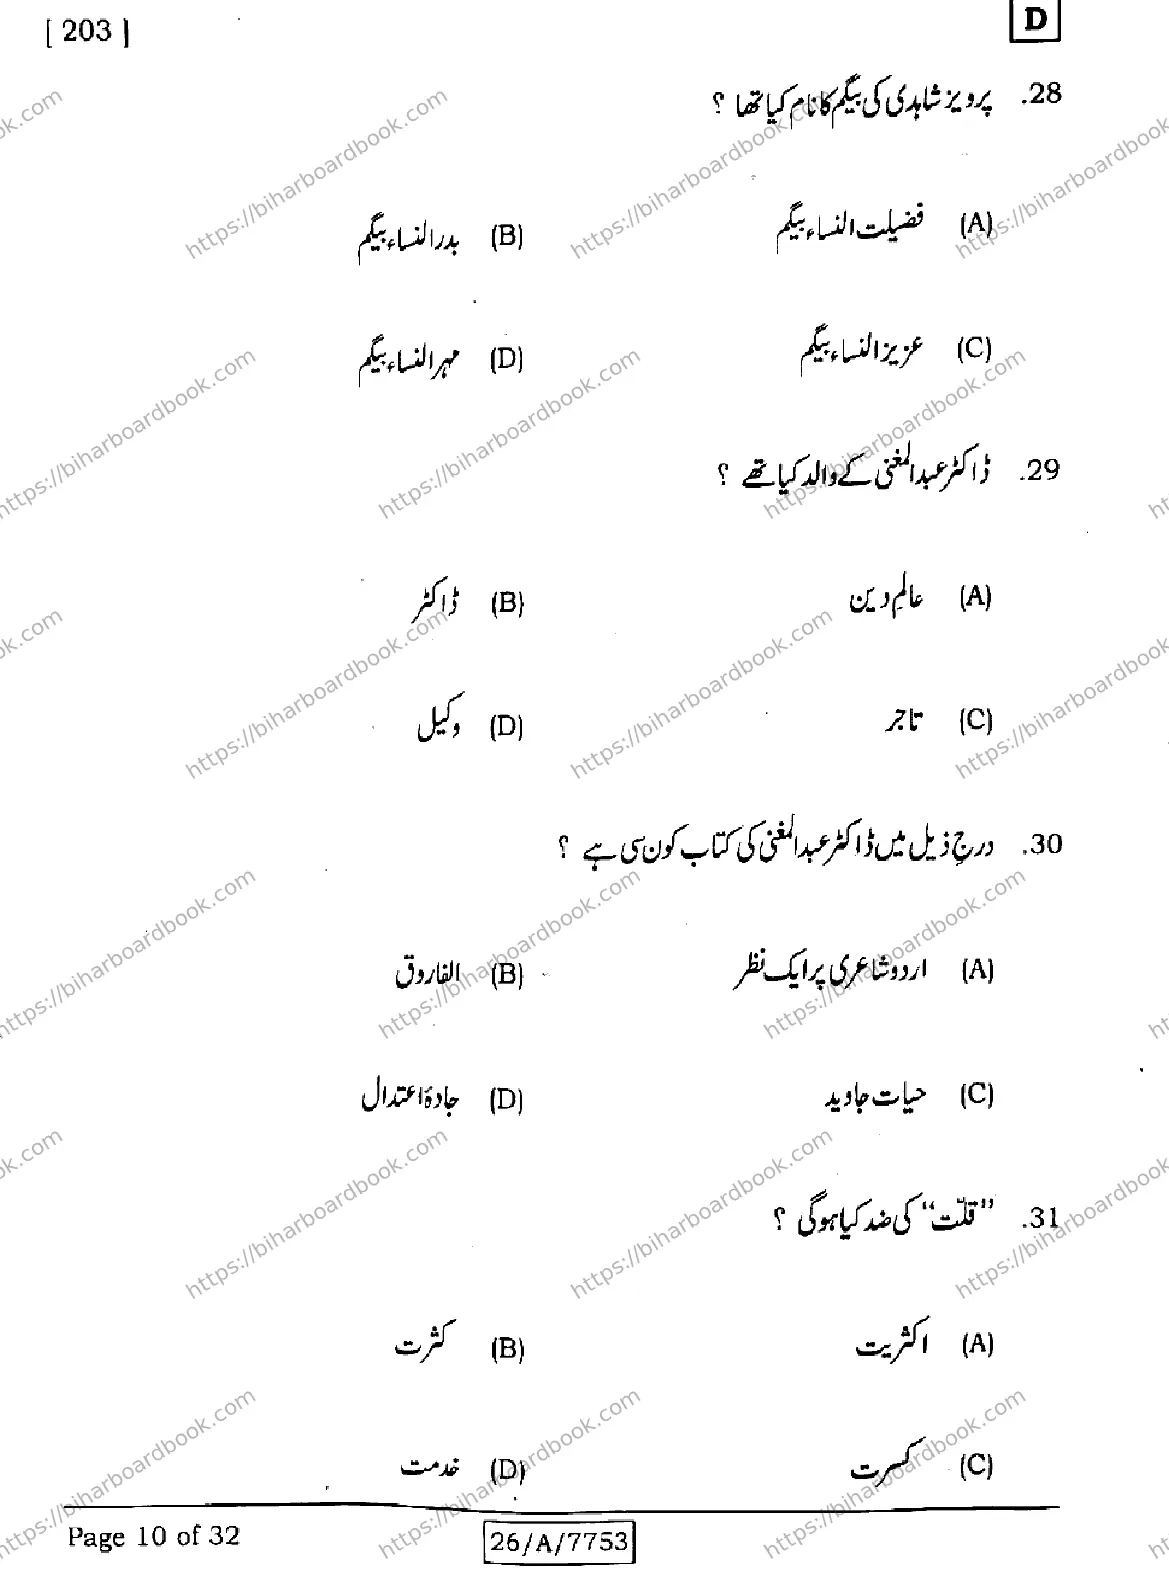 [ 203 ]
D
28. پرویز شاہدی کی بیگم کا نام کیا تھا ؟
(A) فضیلت النساء بیگم (B) بدر النساء بیگم
(C) عزیز النساء بیگم (D) مہر النساء بیگم
29. ڈاکٹر عبدالمغنی کے والد کیا تھے ؟
(A) عالم دین (B) ڈاکٹر
(C) تاجر (D) وکیل
30. درج ذیل میں ڈاکٹر عبدالمغنی کی کتاب کون سی ہے ؟
(A) اردو شاعری پر ایک نظر (B) الفاروق
(C) حیات جاوید (D) جادۂ اعتدال
31. "قلّت" کی ضد کیا ہوگی ؟
(A) اکثریت (B) کثرت
(C) کسرت (D) خدمت
Page 10 of 32
26/A/7753
https://biharboardbook.com